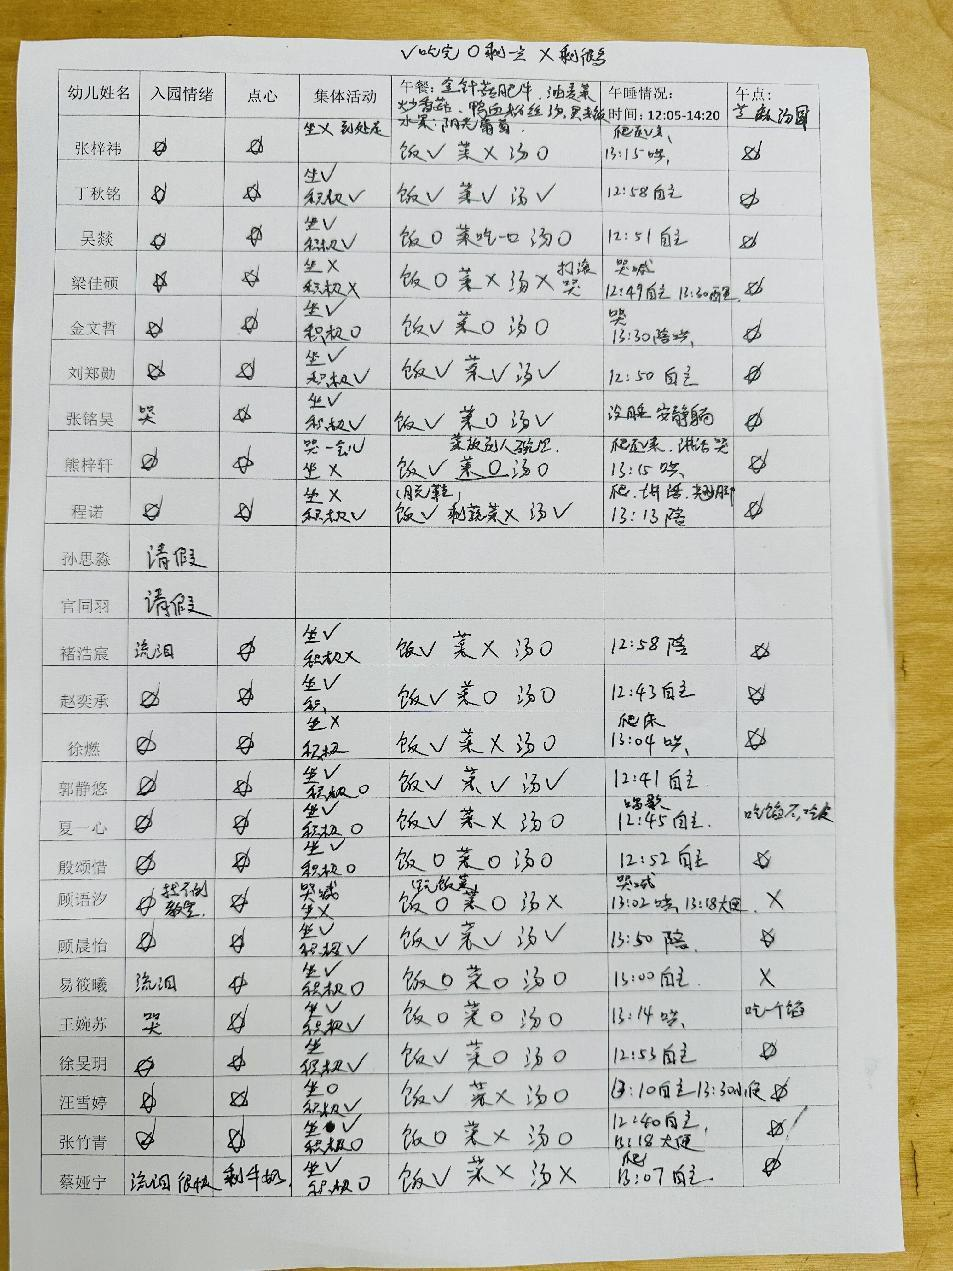 ✓吃完 O剩一点 X剩很多
幼儿姓名 入园情绪 点心 集体活动 午餐：金针菇肥牛、油麦菜 午睡情况： 午点：
炒香菇、鸭血粉丝汤、黑米饭 时间：12:05-14:20 芝麻汤圆
水果：阳光葡萄
张梓祎 坐X 到处走 饭✓ 菜X 汤O 爬起来 13:15哄
丁秋铭 坐✓ 积极✓ 饭✓ 菜✓ 汤✓ 12:58自主
吴燚 坐✓ 积极✓ 饭O 菜吃一口 汤O 12:51自主
梁佳硕 坐X 积极X 饭O 菜X 汤X 打滚 哭 哭喊 12:49自主 13:30醒
金文哲 坐✓ 积极O 饭✓ 菜O 汤O 哭 13:30陪哄
刘郑勋 坐✓ 积极✓ 饭✓ 菜✓ 汤✓ 12:50自主
张铭昊 哭 坐✓ 积极✓ 饭✓ 菜O 汤✓ 没睡 安静躺
熊梓轩 哭一会✓ 坐X 菜放别人碗里 饭✓ 菜O 汤O 爬起来、讲话 哭 13:15哄
程诺 坐X 积极✓ (脱鞋) 饭✓ 剩蔬菜X 汤✓ 爬、讲话、翘脚 13:13陪
孙思淼 请假
官同羽 请假
褚浩宸 流泪 坐✓ 积极X 饭✓ 菜X 汤O 12:58陪
赵奕承 坐✓ 积 饭✓ 菜O 汤O 12:43自主
徐燃 坐X 积极 饭✓ 菜X 汤O 爬床 13:04哄
郭静悠 坐✓ 积极O 饭✓ 菜✓ 汤✓ 12:41自主
夏一心 坐✓ 积极O 饭✓ 菜X 汤O 唱歌 12:45自主 吃馅不吃皮
殷颂惜 坐✓ 积极O 饭O 菜O 汤O 12:52自主
顾语汐 找不到教室 哭喊 坐X (玩饭菜) 饭O 菜O 汤X 哭喊 13:02哄 13:18大便 X
顾晨怡 坐✓ 积极✓ 饭✓ 菜✓ 汤✓ 13:50陪
易筱曦 流泪 坐✓ 积极O 饭O 菜O 汤O 13:00自主 X
王婉苏 哭 坐✓ 积极✓ 饭O 菜O 汤O 13:14哄 吃一个馅
徐旻玥 坐 积极✓ 饭✓ 菜O 汤O 12:53自主
汪雪婷 坐O 积极✓ 饭✓ 菜X 汤O 13:10自主 13:30小便
张竹青 坐✓ 积极O 饭O 菜X 汤O 12:40自主 13:18大便
蔡娅宁 流泪很快 剩牛奶 坐✓ 积极O 饭✓ 菜X 汤X 爬 13:07自主